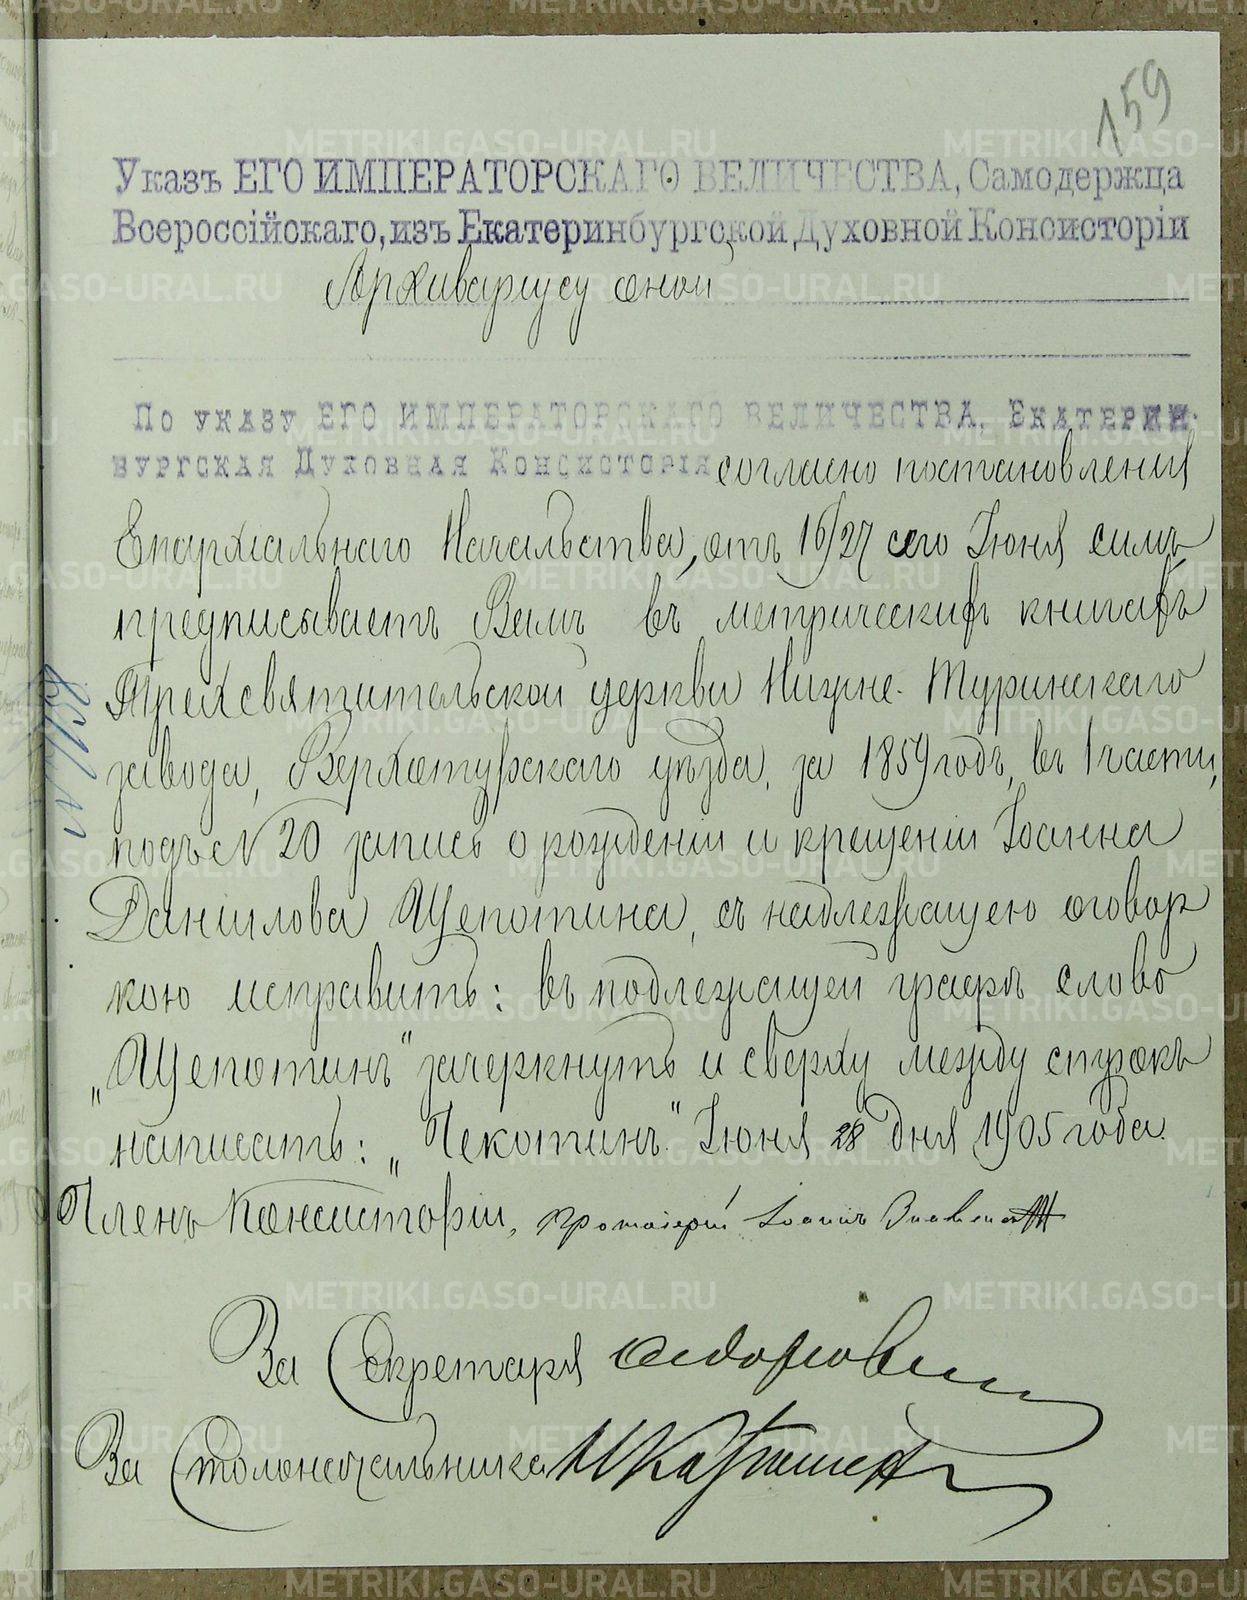 159
Указъ ЕГО ИМПЕРАТОРСКАГО ВЕЛИЧЕСТВА, Самодержца
Всероссійскаго, изъ Екатеринбургской Духовной Консисторіи
Архиваріусу оной
По указу ЕГО ИМПЕРАТОРСКАГО ВЕЛИЧЕСТВА, Екатерин-
бургская Духовная Консисторія согласно постановленія
Епархіальнаго Начальства, отъ 16/27 сего Іюня симъ
предписываетъ Вамъ въ метрическихъ книгахъ
Трехсвятительской церкви Нижне-Туринскаго
завода, Верхотурскаго уѣзда, за 1859 годъ, въ 1 части,
подъ № 20 запись о рожденіи и крещеніи Іоанна
Данилова Щепотина, съ надлежащею оговор
кою исправить: въ подлежащей графѣ слово
„Щепотинъ" зачеркнуть и сверху между строкъ
написать: „Чекотинъ." Іюня 28 дня 1905 года.
Членъ Консисторіи, протоіерей Іоаннъ
За Секретаря
За Столоначальника
METRIKI.GASO-URAL.RU